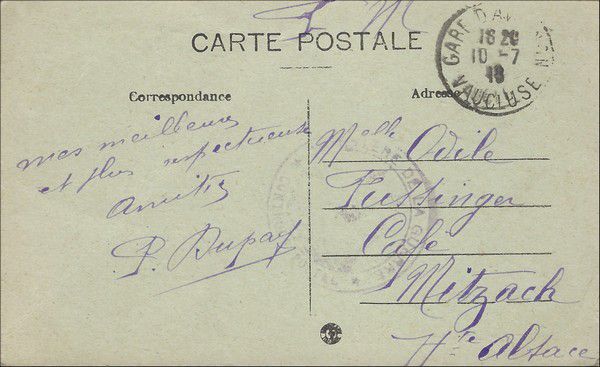 F. M.
CARTE POSTALE
GARE D'AV
18 20
10 -7
18
VAUCLUSE
Correspondance
Adresse
mes meilleures
et plus respectueuses
Amitiés
P. Dupay
Melle Odile
Café
Mitzach
Hte Alsace
DE LA GUERRE